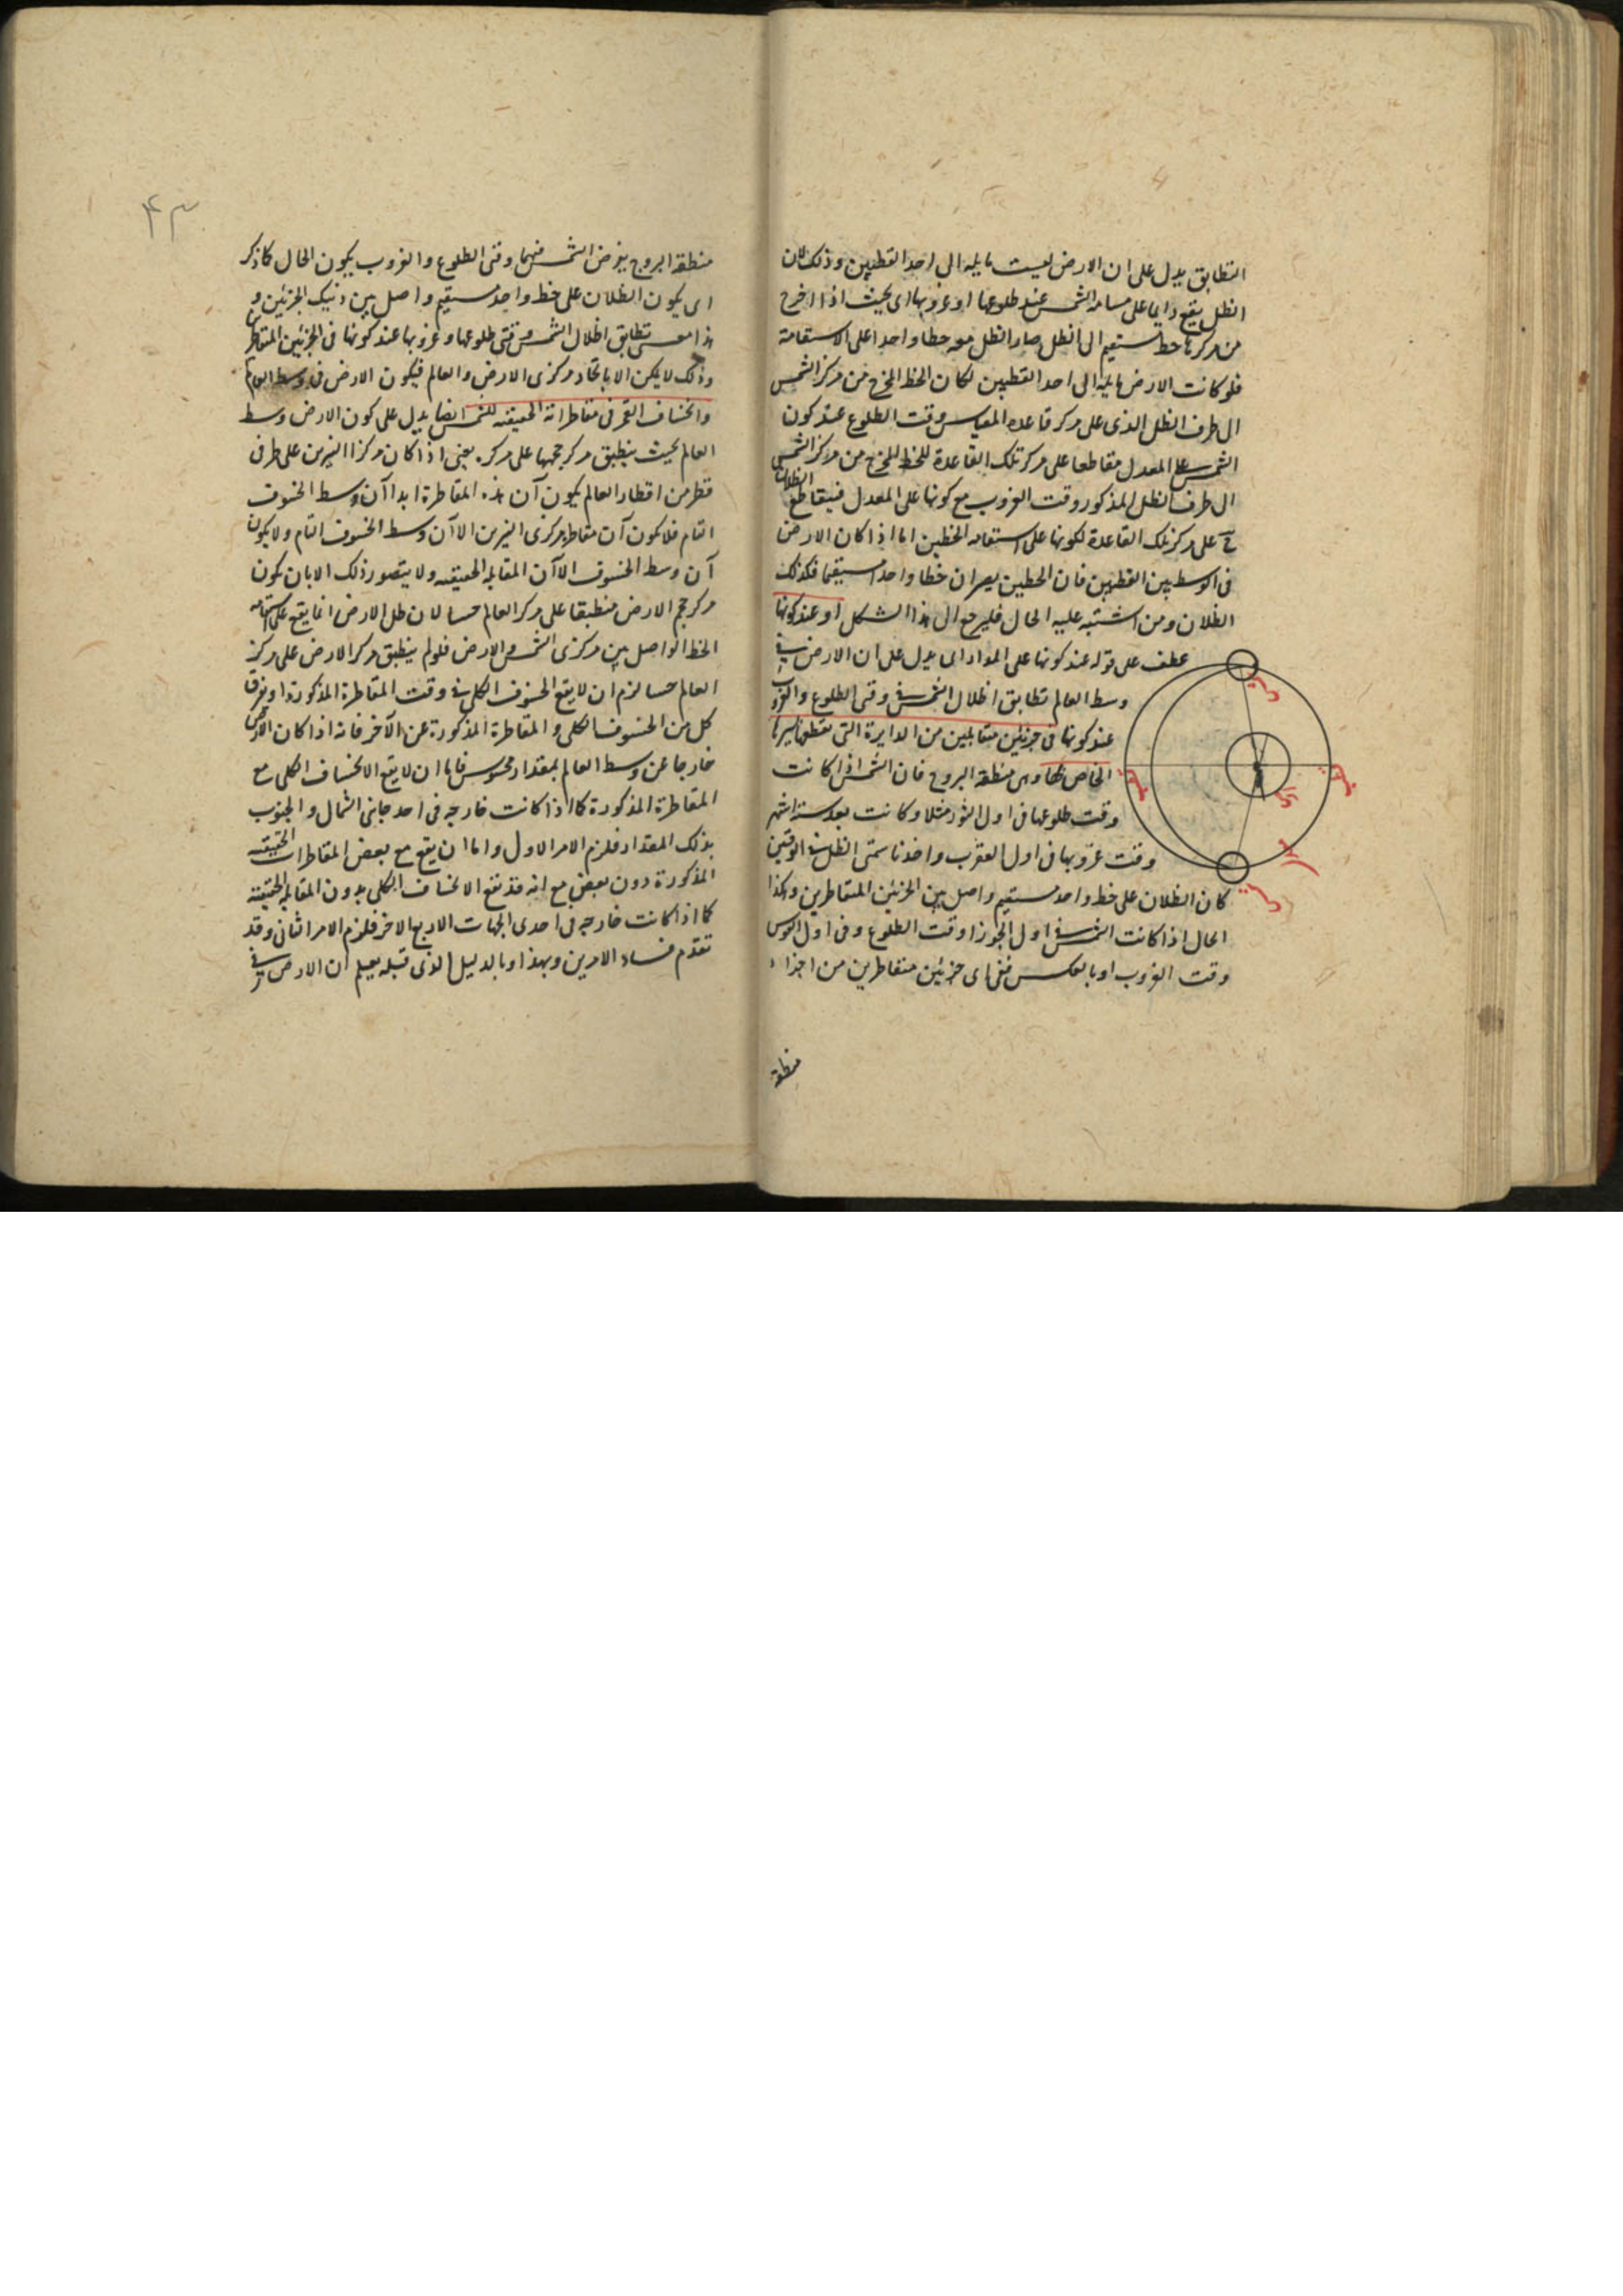 التطابق يدل على ان الارض ليست مايلة الى احد القطبين وذلك لان
الظل يقع دايما على مسامتة الشمس عند طلوعها او غروبها اى بحيث اذا اخرج
من مركزها خط مستقيم الى الظل صار الظل معه خطا واحدا على الاستقامة
فلو كانت الارض مايلة الى احد القطبين لكان الخط المخرج من مركز الشمس
الى طرف الظل الذى على مركز قاعدة المقياس وقت الطلوع عند كون
الشمس على المعدل مقاطعا على مركز تلك القاعدة للخط المخرج من مركز الشمس
الى طرف الظل المذكور وقت الغروب مع كونها على المعدل فيتقاطع الظلان
ح على مركز تلك القاعدة لكونها على استقامة الخطين اما اذا كان الارض
فى الوسط بين القطبين فان الخطين يصيران خطا واحدا مستقيما فكذلك
الظلان ومن اشتبه عليه الحال فليرجع الى هذا الشكل او عند كونها
عطف على قوله عند كونها على المدار اى يدل على ان الارض فى
وسط العالم تطابق اظلال الشمس فى وقتى الطلوع والغروب
عند كونها فى جزئين متقابلين من الدايرة التى تقطعها بسيرها
الخاص بها وهى منطقة البروج فان الشمس اذا كانت
وقت طلوعها فى اول الثور مثلا وكانت بعد ستة اشهر
وقت غروبها فى اول العقرب واخذنا سمتى الظل فى الوقتين
كان الظلان على خط واحد مستقيم واصل بين الجزئين المتقاطرين وهكذا
الحال اذا كانت الشمس فى اول الجوزا وقت الطلوع وفى اول القوس
وقت الغروب او بالعكس ففى اى جزئين متقاطرين من اجزاء
منطقة
٤٣
منطقة البروج يفرض الشمس فيهما وقتى الطلوع والغروب يكون الحال كما ذكر
اى يكون الظلان على خط واحد مستقيم واصل بين ذينك الجزئين و
هذا معنى تطابق اظلال الشمس وقتى طلوعها وغروبها عند كونها فى الجزئين المتقاطرين
وذلك لا يمكن الا باتحاد مركزى الارض والعالم فيكون الارض فى وسط العالم
وانخساف القمر فى مقاطراته الحقيقيه للشمس ايضا يدل على كون الارض وسط
العالم بحيث ينطبق مركز حجمها على مركزه يعنى اذا كان مركزا النيرين على طرفى
قطر من اقطار العالم يكون آن هذه المقاطرة ابدا آن وسط الخسوف
التام فلا يكون آن مقاطرة مركزى النيرين الا آن وسط الخسوف التام ولا يكون
آن وسط الخسوف الا آن المقابلة الحقيقيه ولا يتصور ذلك الا بان يكون
مركز حجم الارض منطبقا على مركز العالم حسا لان ظل الارض انما يقع على استقامة
الخط الواصل بين مركزى الشمس والارض فلو لم ينطبق مركز الارض على مركز
العالم حسا لزم ان لا يقع الخسوف الكلى فى وقت المقاطرة المذكورة او يفرق
كل من الخسوف الكلى والمقاطرة المذكورة عن الآخر فانه اذا كان الارض
خارجا عن وسط العالم بمقدار محسوس فاما ان لا يقع الانخساف الكلى مع
المقاطرة المذكورة كما اذا كانت خارجه فى احد جانبى الشمال والجنوب
بذلك المقدار فلزم الامر الاول واما ان يقع مع بعض المقاطرات الحقيقيه
المذكورة دون بعض مع انه قد يقع الانخساف الكلى بدون المقابلة الحقيقية
كما اذا كانت خارجه فى احدى الجهات الاربع الاخر فلزم الامر الثانى وقد
تقدم فساد الامرين وبهذا وبالدليل الذى قبله يعلم ان الارض فى